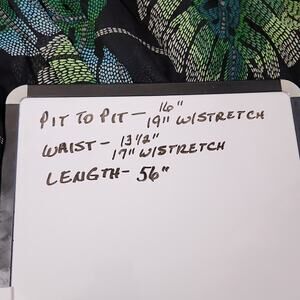 PIT TO PIT - 16"
19" W/STRETCH
WAIST - 13 1/2"
17" W/STRETCH
LENGTH - 56"